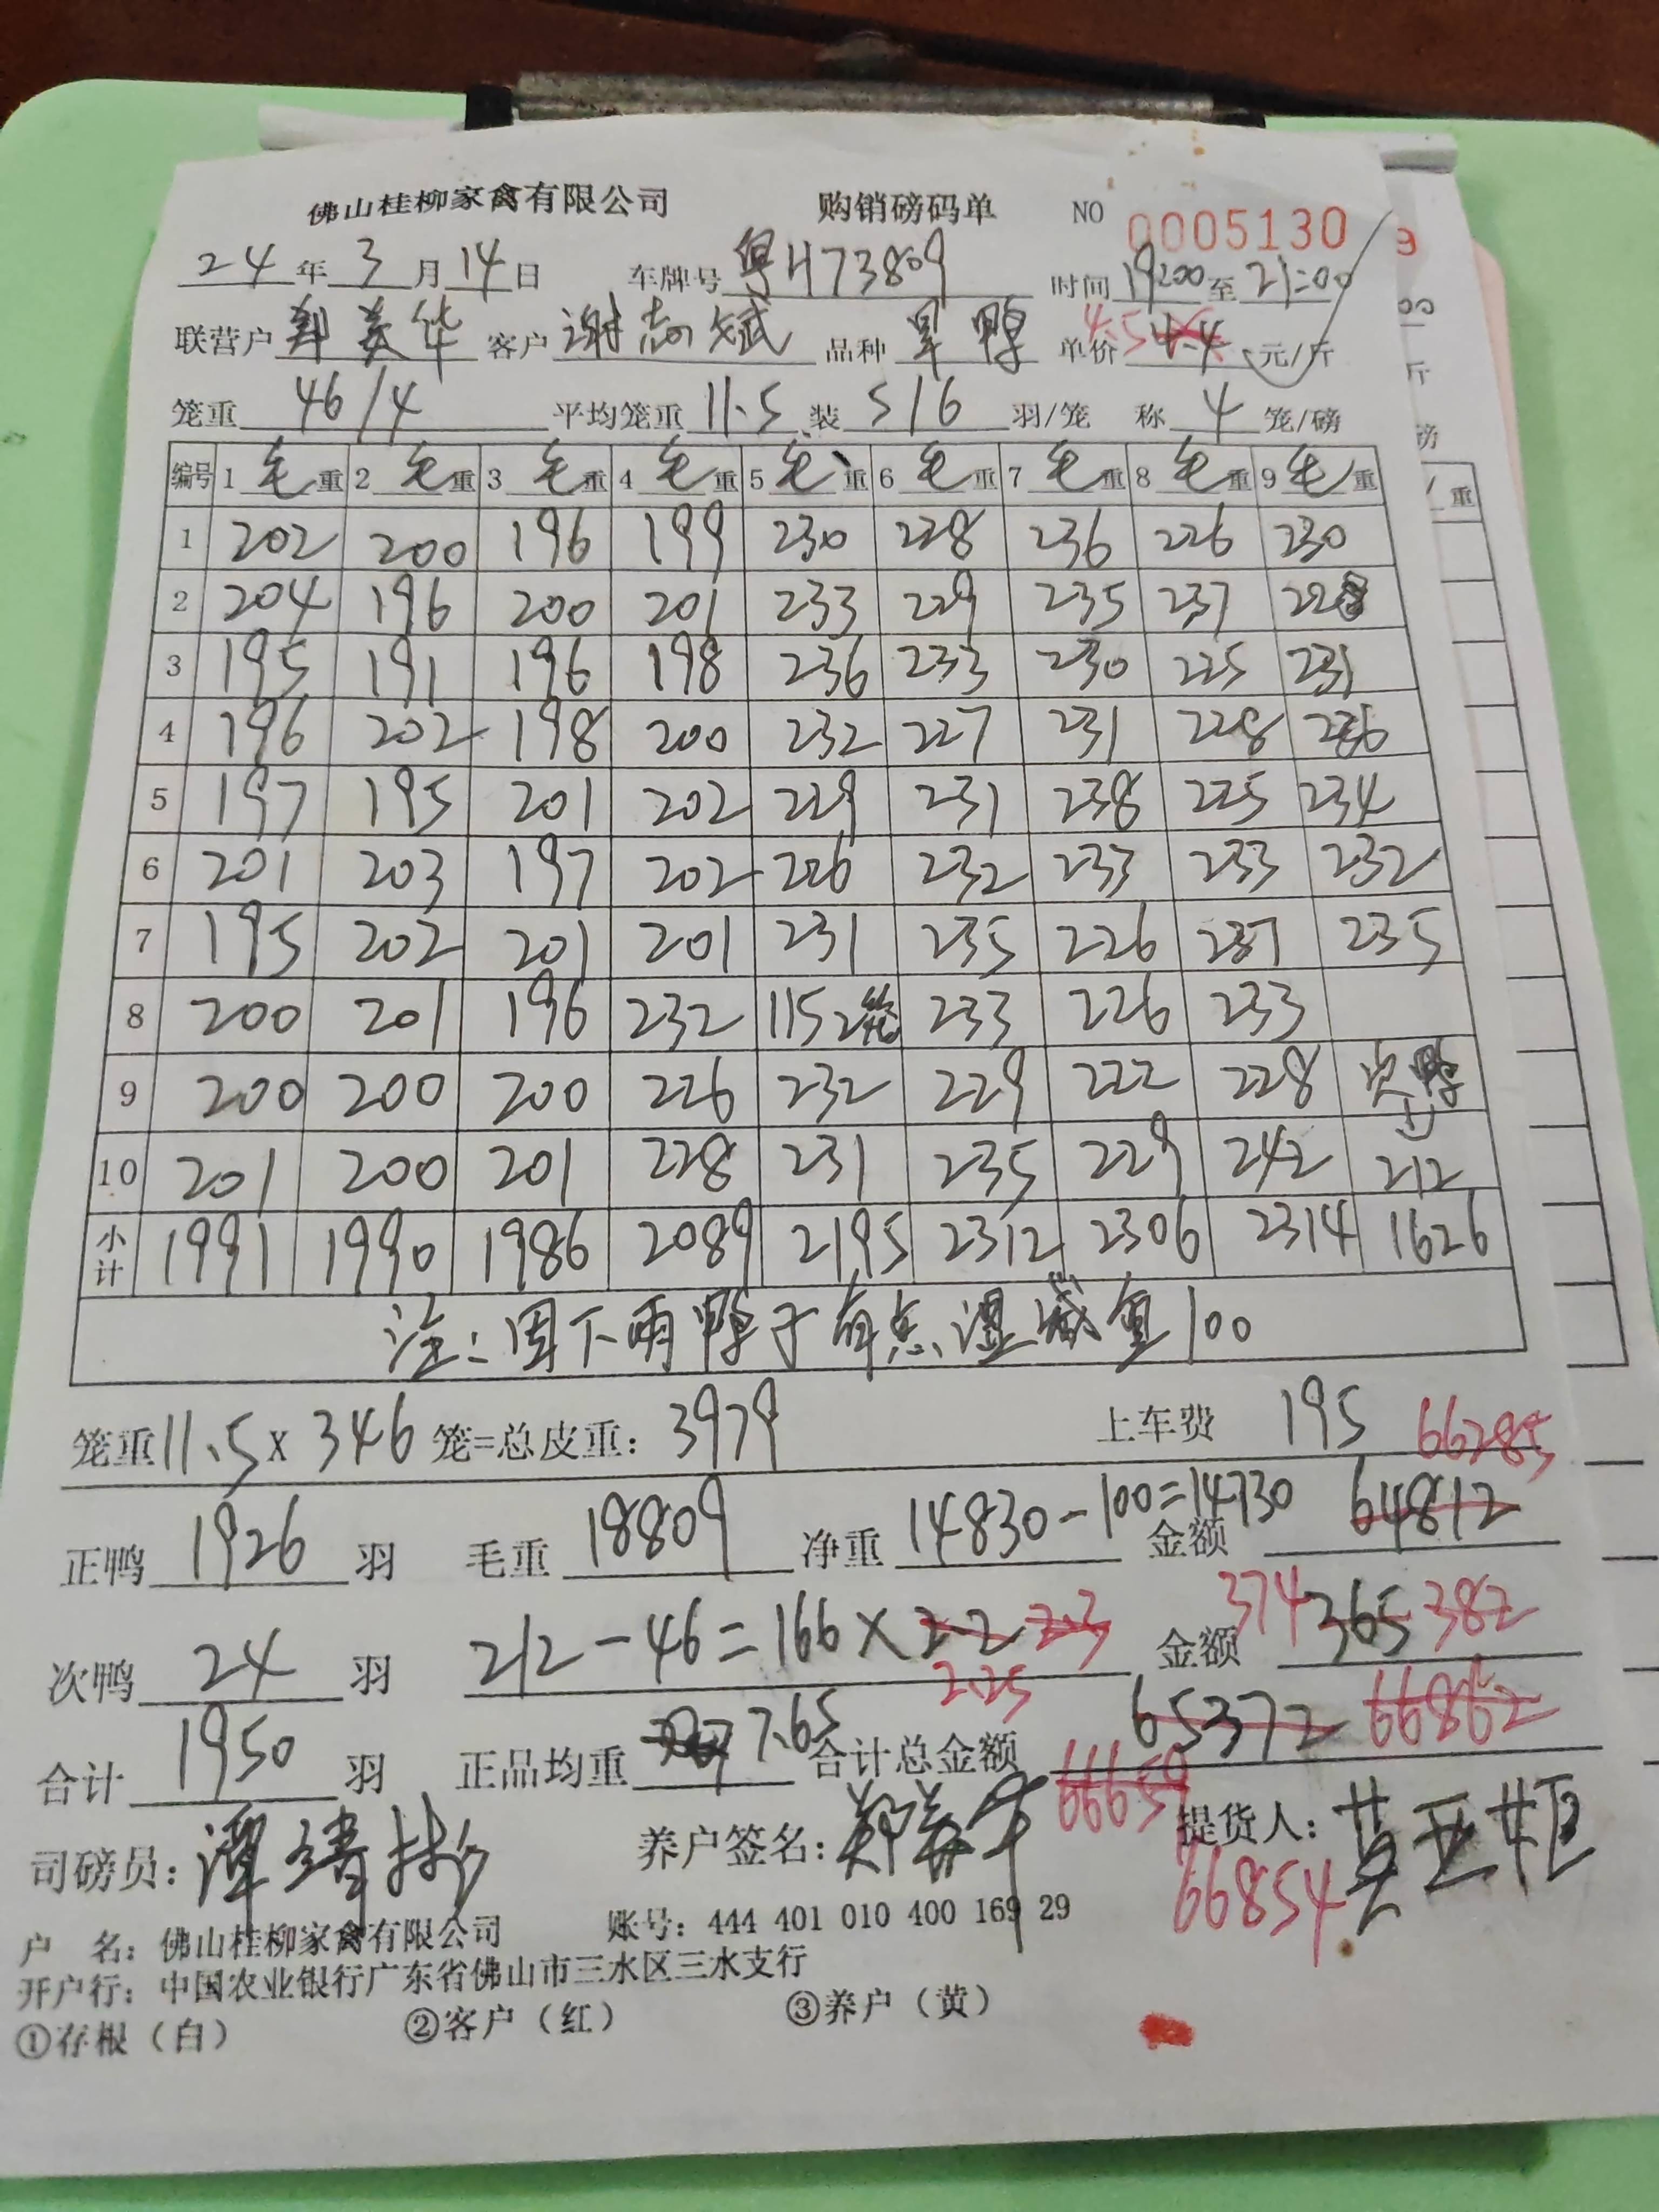 佛山桂柳家禽有限公司 购销磅码单 NO 0005130
24年3月14日 车牌号 粤H73809 时间 19:00至21:00
联营户 郑美华 客户 谢志斌 品种 旱鸭 单价 4.5 4.4 元/斤
笼重 46/4 平均笼重 11.5 装 5/6 羽/笼 称 4 笼/磅
编号 1毛重 2毛重 3毛重 4毛重 5毛重 6毛重 7毛重 8毛重 9毛重
1 202 200 196 199 230 228 236 226 230
2 204 196 200 201 233 229 235 237 228
3 195 191 196 198 236 233 230 225 231
4 196 202 198 200 232 227 231 228 236
5 197 195 201 202 229 231 238 225 234
6 201 203 197 202 226 232 233 233 232
7 195 202 201 201 231 235 226 237 235
8 200 201 196 232 115 2笼 233 226 233
9 200 200 200 226 232 229 222 228 次鸭
10 201 200 201 228 231 235 229 242 212
小计 1991 1990 1986 2089 2195 2312 2306 2314 1626
注:因下雨鸭子有点湿减重100
笼重11.5×346笼=总皮重:3979 上车费 195 66285
正鸭 1926 羽 毛重 18809 净重 14830-100=14730 金额 64812
次鸭 24 羽 212-46=166×2.2 2.3 2.25 金额 374 365 382
合计 1950 羽 正品均重 7.65 合计总金额 65372 66862
66659
司磅员: 养户签名:郑美华 提货人:黄亚矩
66854
户 名:佛山桂柳家禽有限公司 账号:444 401 010 400 169 29
开户行:中国农业银行广东省佛山市三水区三水支行
①存根(白) ②客户(红) ③养户(黄)